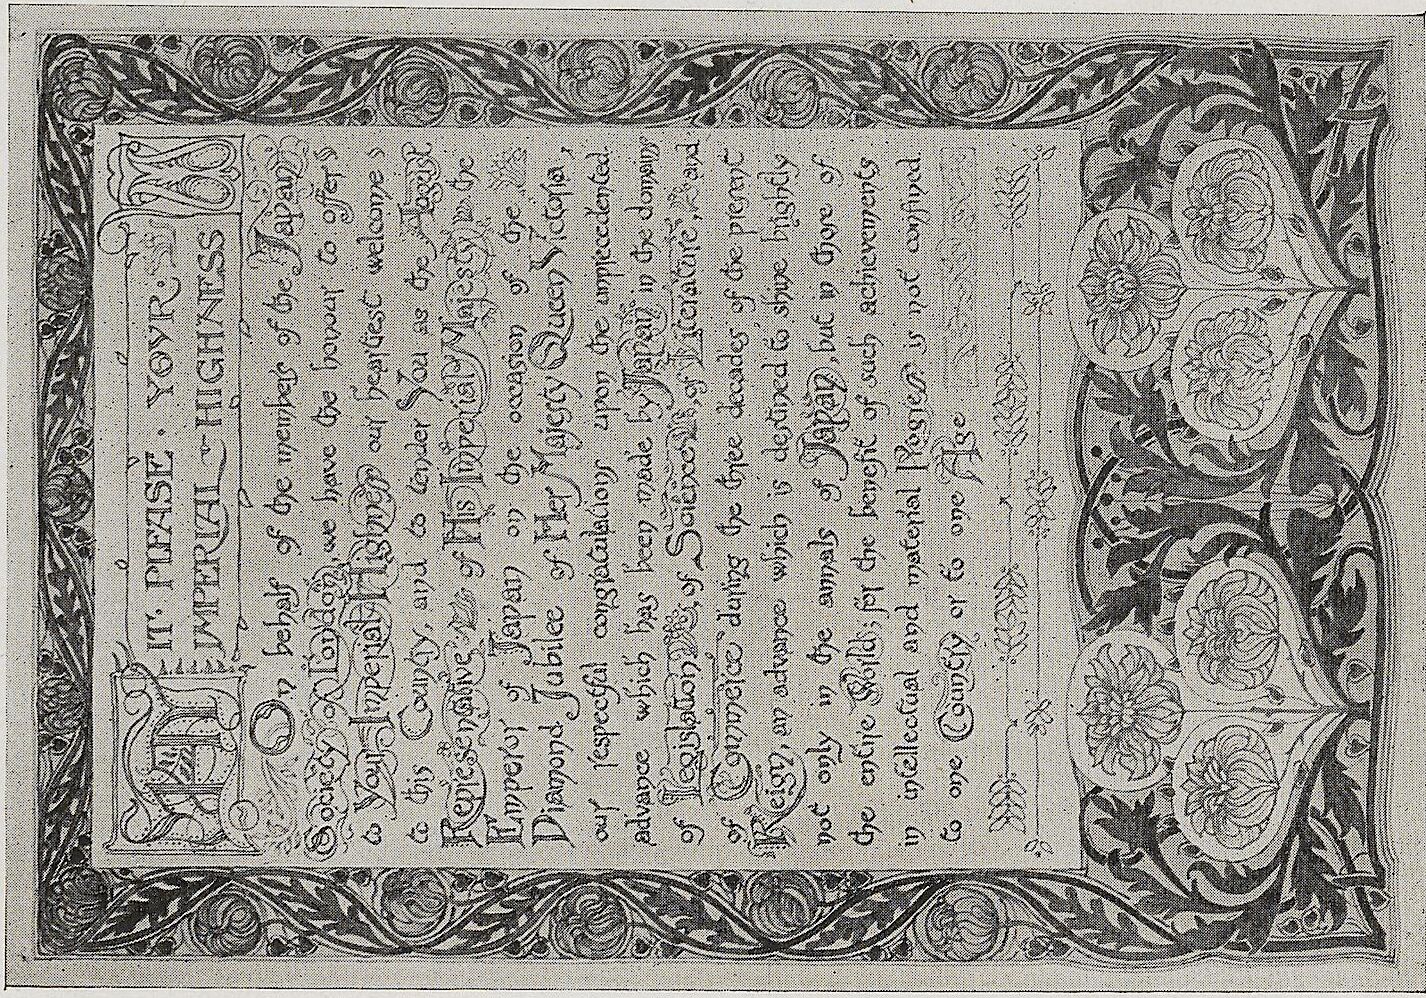 IT · PLEASE · YOVR ·
IMPERIAL HIGHNESS
On behalf of the members of the Japan
Society of London, we have the honour to offer
to Your Imperial Highness our heartiest welcome
to this Country, and to tender You as the August
Representative of His Imperial Majesty the
Emperor of Japan on the occasion of the
Diamond Jubilee of Her Majesty Queen Victoria,
our respectful congratulations upon the unprecedented
advance which has been made by Japan in the domains
of Legislation, of Science, of Literature, and
of Commerce during the three decades of the present
Reign, an advance which is destined to shine brightly
not only in the annals of Japan, but in those of
the entire World; for the benefit of such achievements
in intellectual and material Progress is not confined
to one Country or to one Age